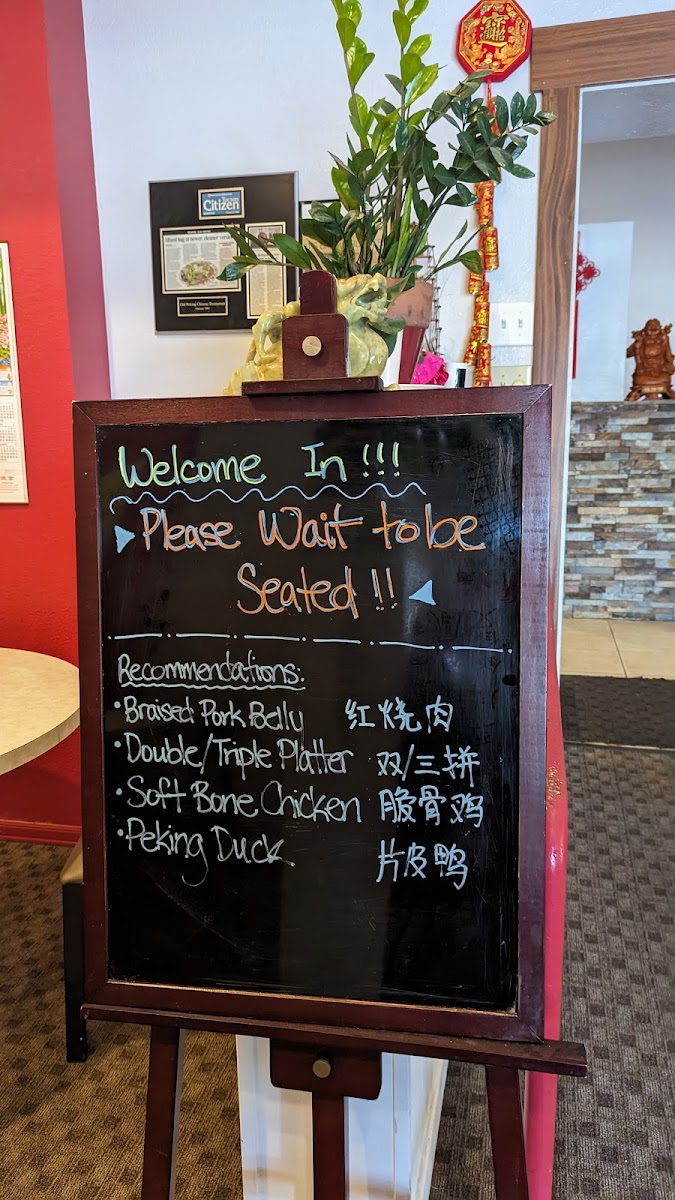 招财进宝
Citizen
Welcome In!!!
Please Wait to be
Seated!!
Recommendations:
•Braised Pork Belly 红烧肉
•Double/Triple Platter 双/三拼
•Soft Bone Chicken 腹骨鸡
•Peking Duck 片皮鸭